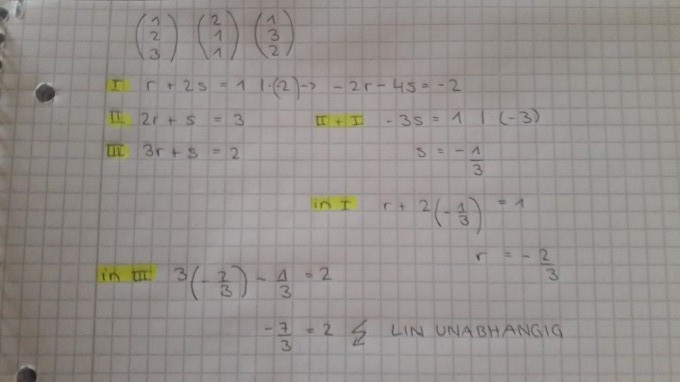 (1 2 3) (2 1 1) (1 3 2)
I r + 2s = 1 | ·(-2) -> -2r - 4s = -2
II 2r + s = 3 II + I -3s = 1 | (-3)
III 3r + s = 2 s = -1/3
in I r + 2(-1/3) = 1
r = -2/3
in III 3(-2/3) - 1/3 = 2
-7/3 = 2 ↯ LIN UNABHANGIG